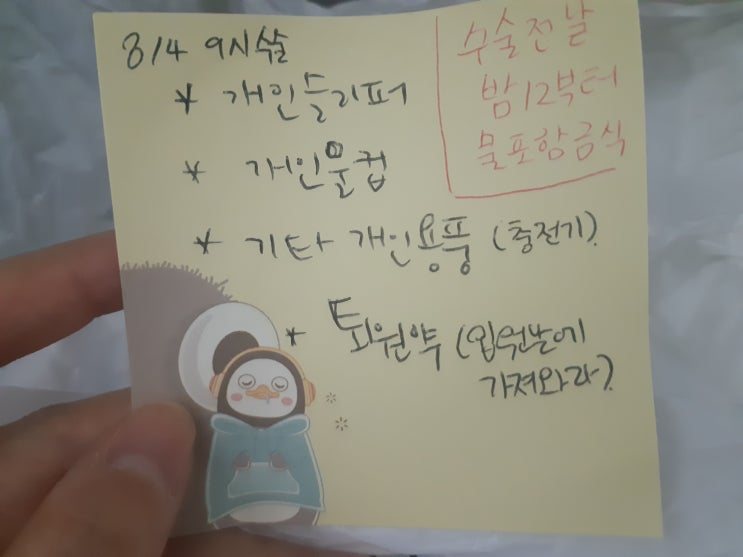 8/4 9시수술
* 개인슬리퍼
* 개인물컵
* 기타 개인용품 (충전기)
* 퇴원약 (입원날에
가져와라)
수술전날
밤12부터
물포함금식